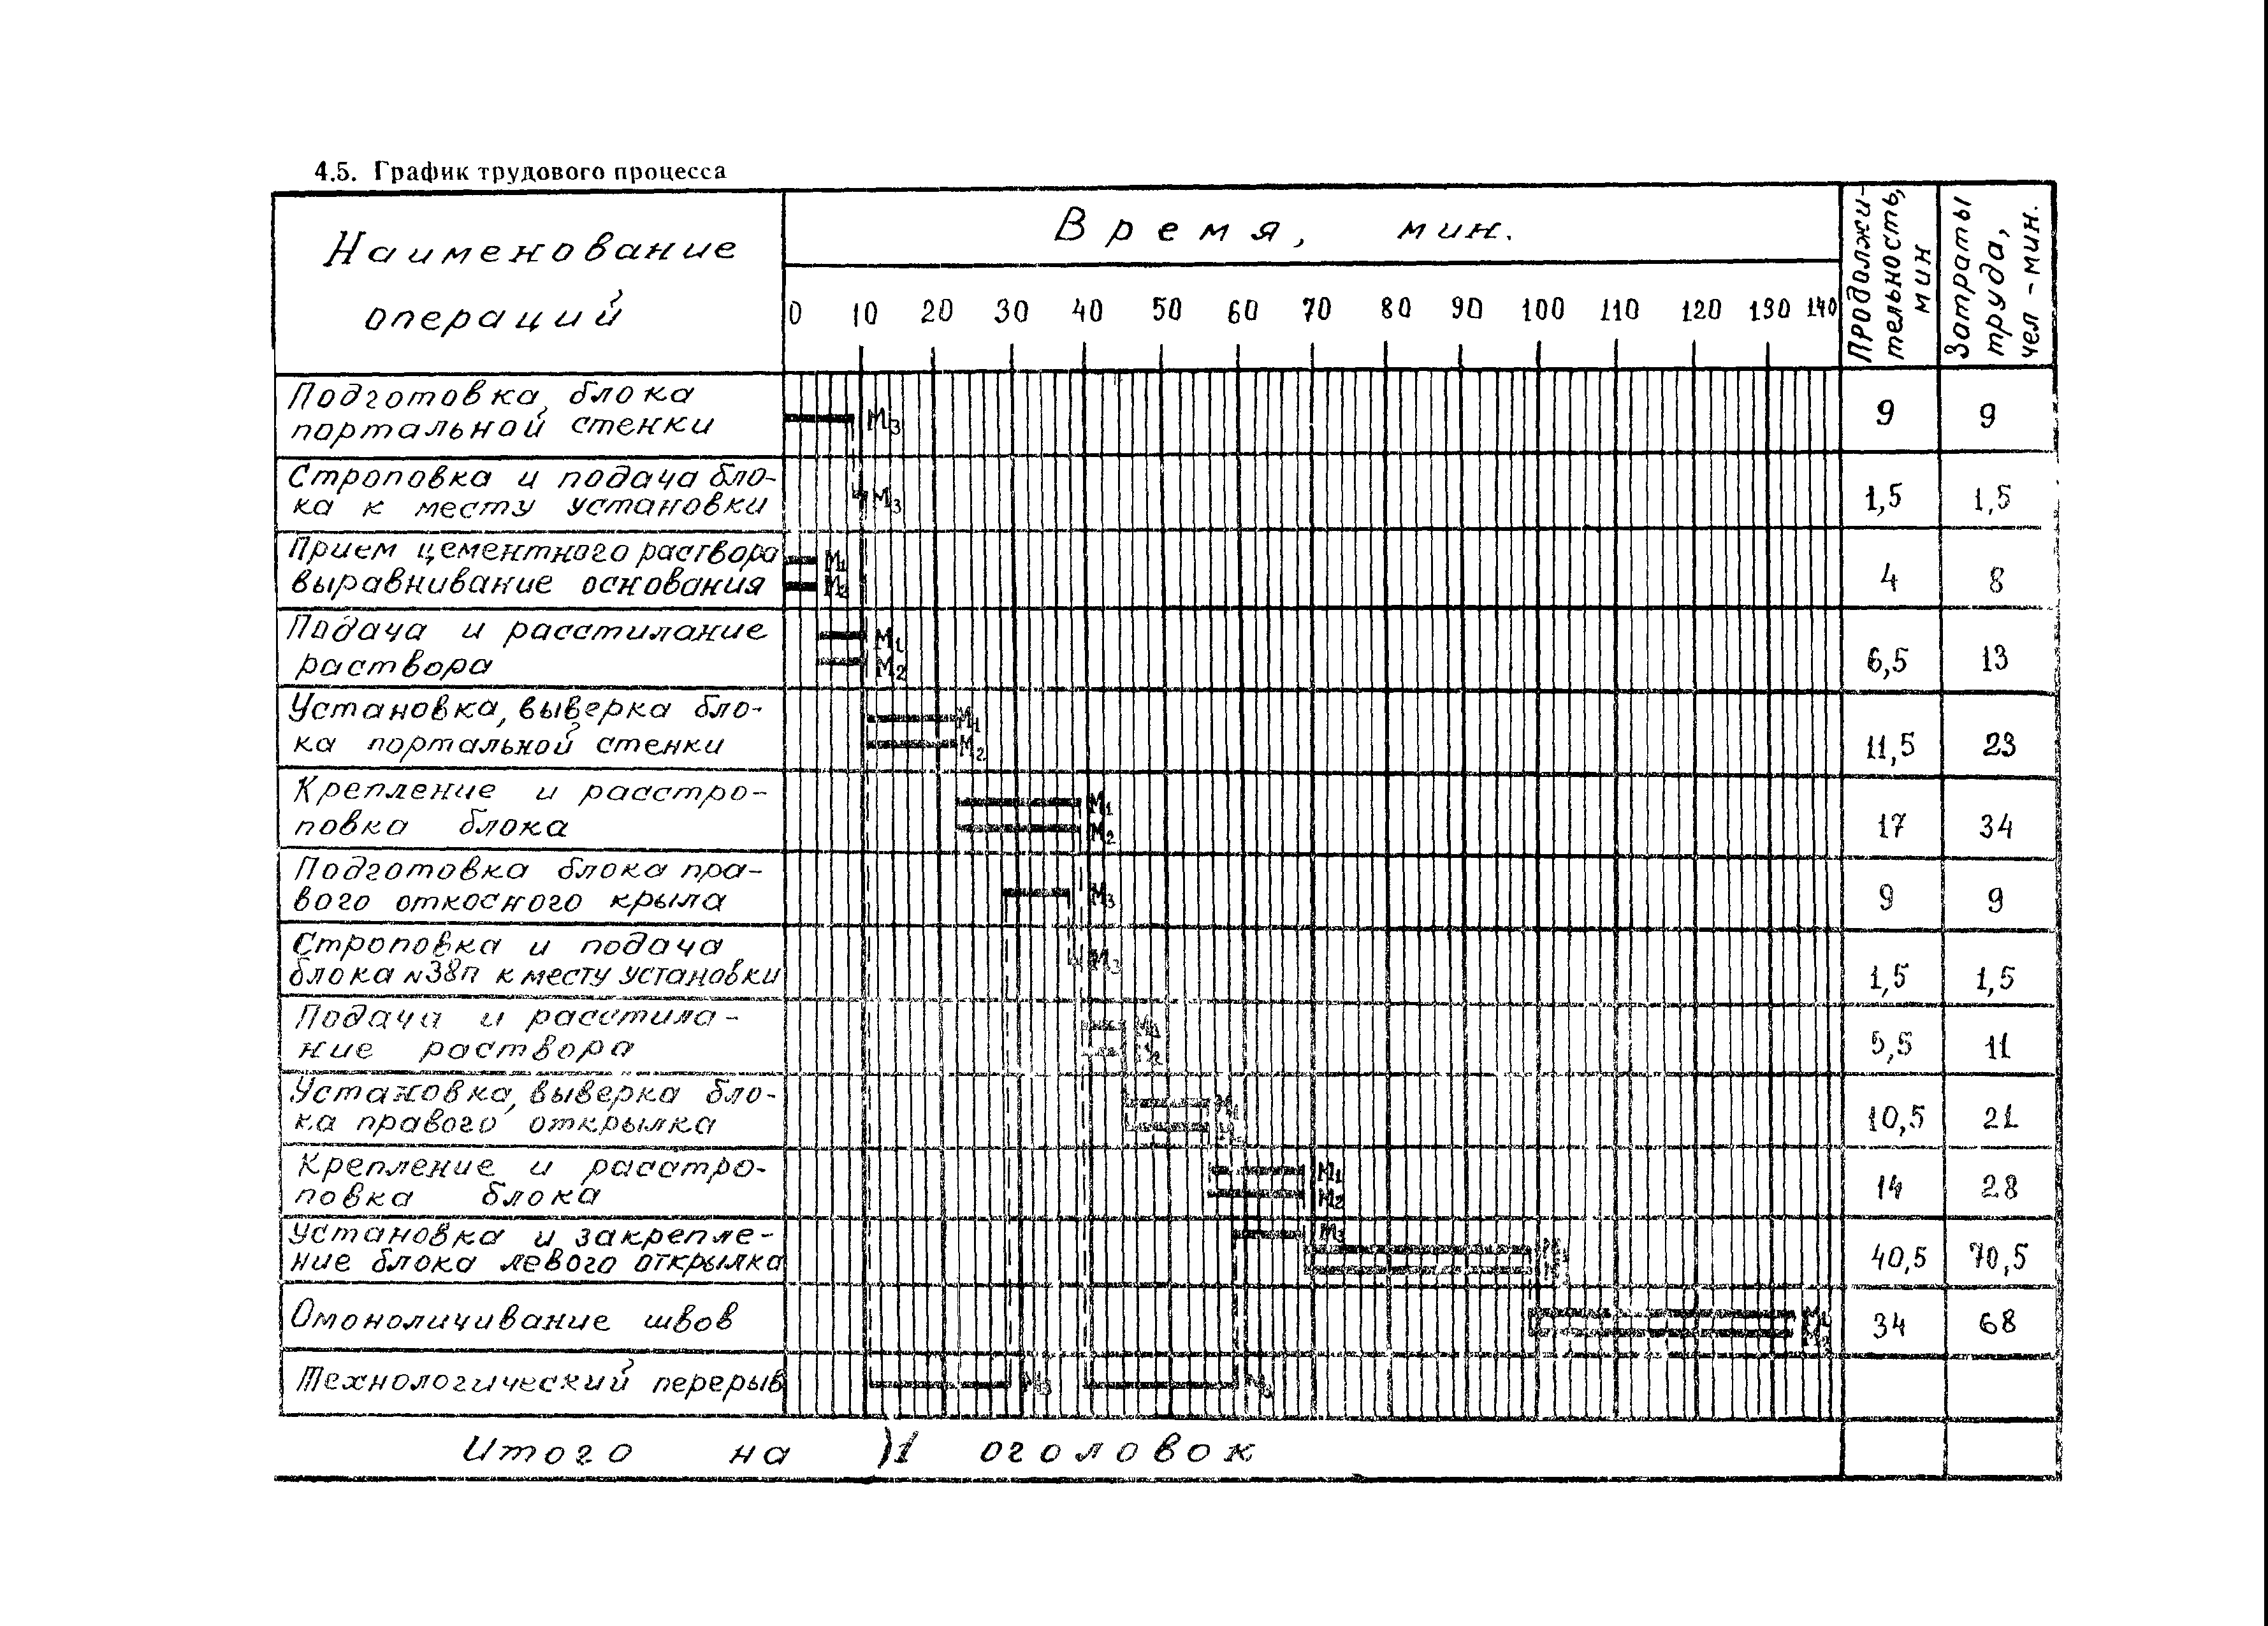 4.5. График трудового процесса
Наименование
операций
Время, мин.
0 10 20 30 40 50 60 70 80 90 100 110 120 130 140
Продолжи-
тельность,
мин
Затраты
труда,
чел-мин.
Подготовка блока
портальной стенки
М3
9
9
Строповка и подача бло-
ка к месту установки
М3
1,5
1,5
Прием цементного раствора
выравнивание основания
М1
М2
4
8
Подача и расстилание
раствора
М1
М2
6,5
13
Установка, выверка бло-
ка портальной стенки
М1
М2
11,5
23
Крепление и расстро-
повка блока
М1
М2
17
34
Подготовка блока пра-
вого откосного крыла
М3
9
9
Строповка и подача
блока N38п к месту установки
М3
1,5
1,5
Подача и расстила-
ние раствора
5,5
11
Установка, выверка бло-
ка правого открылка
10,5
21
Крепление и расстро-
повка блока
М1
М2
14
28
Установка и закрепле-
ние блока левого открылка
М3
40,5
70,5
Омоноличивание швов
34
68
Технологический перерыв
М3
М3
Итого на 1 оголовок